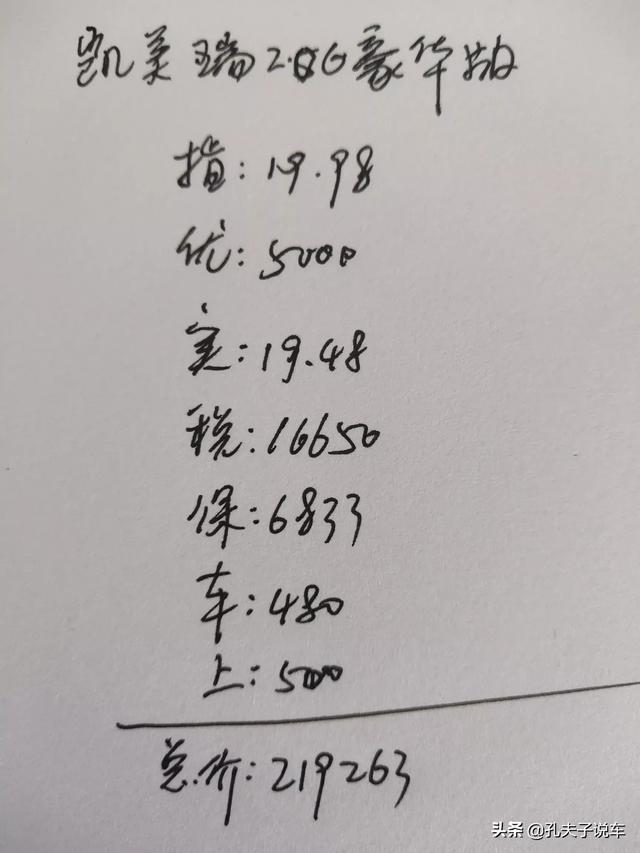 凯美瑞2.0G豪华版
指:19.98
优:5000
实:19.48
税:16650
保:6833
车:480
上:500
总价:219263
头条 @孔夫子说车